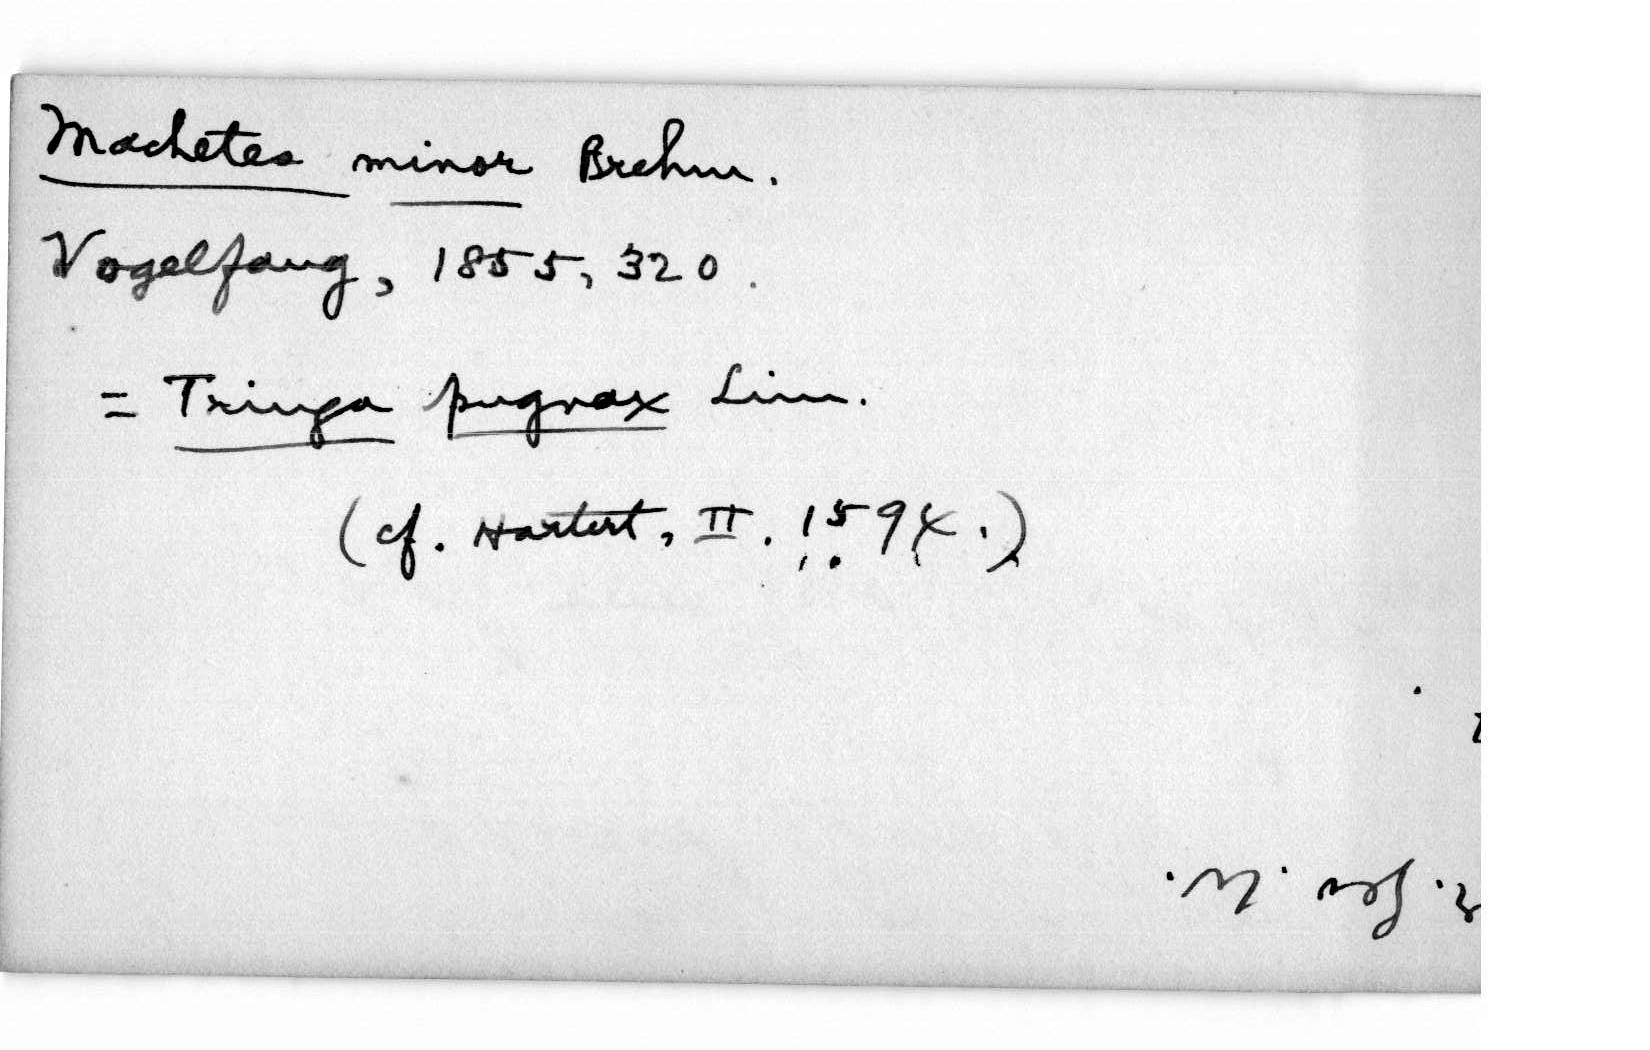 Machetes minor Brehm.
Vogelfang, 1855, 320.
= Tringa pugnax Linn.
(cf. Hartert, II. 1594.)